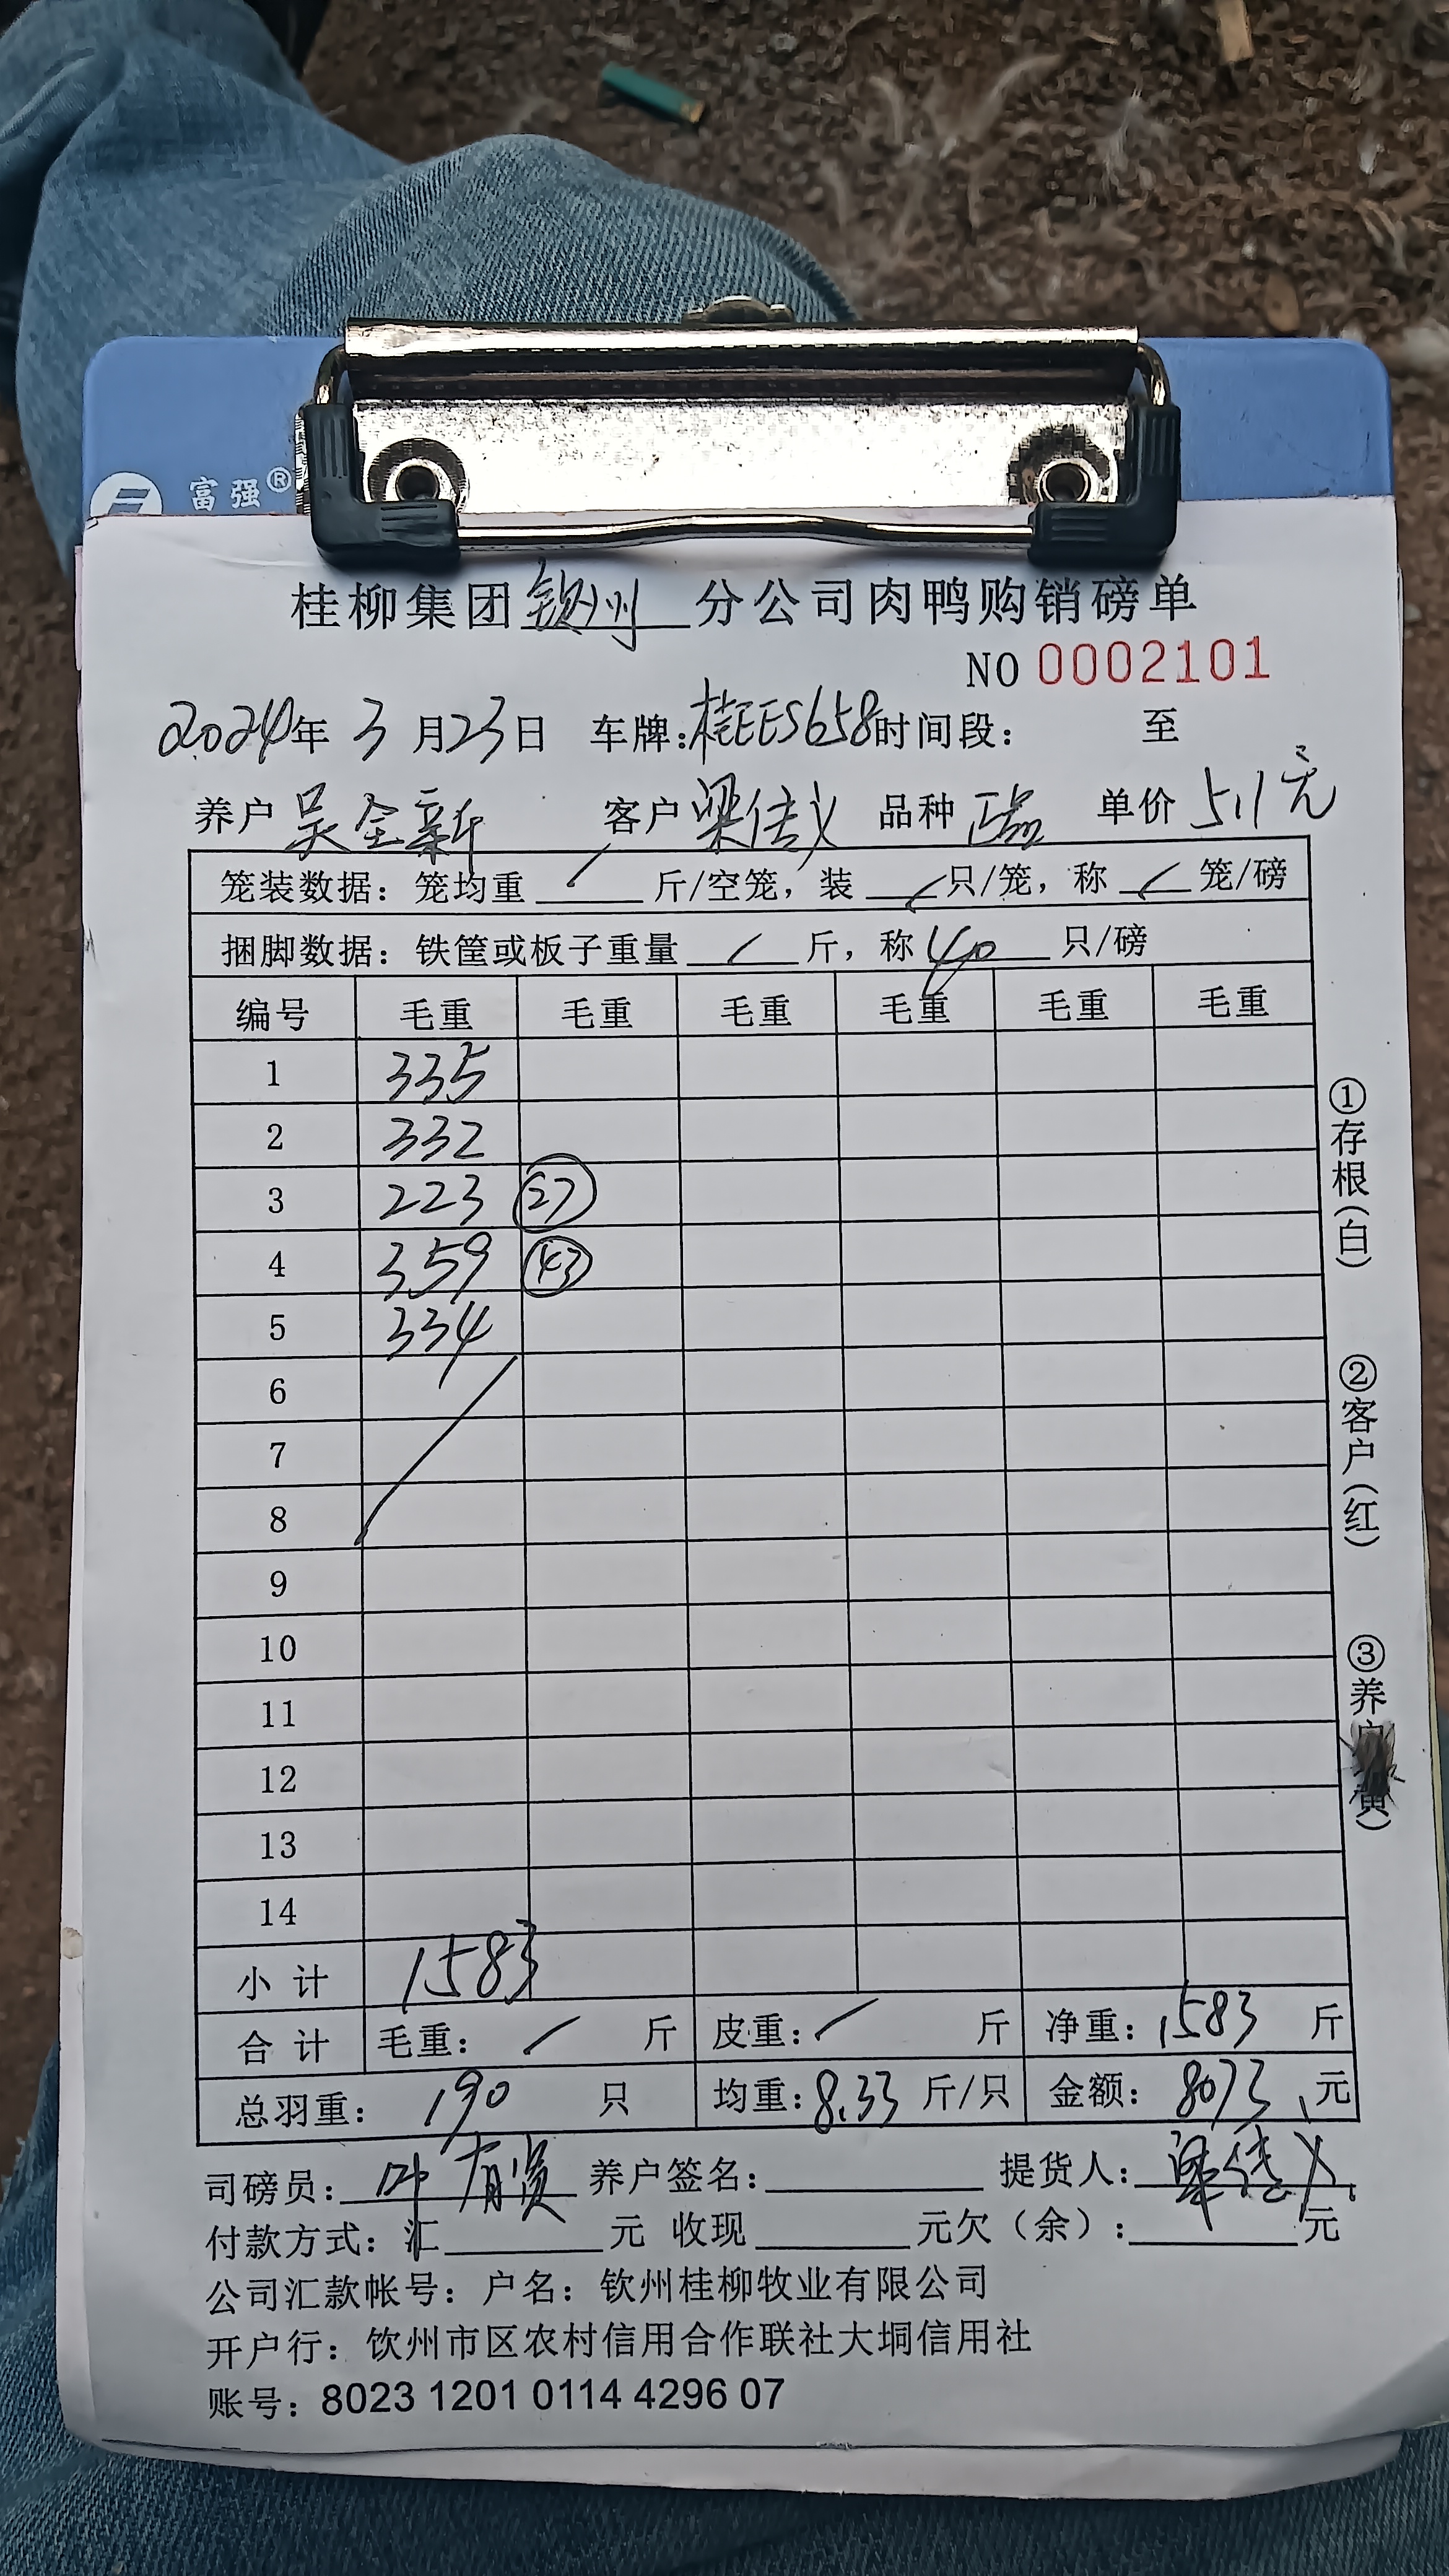 富强®
桂柳集团钦州分公司肉鸭购销磅单
NO 0002101
2024年 3月23日 车牌:桂EES658时间段: 至
养户 吴全新 客户 梁传义 品种 单价 5.1元
笼装数据: 笼均重 / 斤/空笼, 装 / 只/笼, 称 / 笼/磅
捆脚数据: 铁筐或板子重量 / 斤, 称 40 只/磅
编号 毛重 毛重 毛重 毛重 毛重 毛重
1 335
2 332
3 223 27
4 359 43
5 334
6
7
8
9
10
11
12
13
14
小计 1583
合计 毛重: / 斤 皮重: / 斤 净重: 1583 斤
总羽重: 190 只 均重: 8.33 斤/只 金额: 8073 元
司磅员: 叶有贤 养户签名: 提货人: 梁传义
付款方式: 汇 元 收现 元欠(余): 元
公司汇款帐号: 户名: 钦州桂柳牧业有限公司
开户行: 钦州市区农村信用合作联社大垌信用社
账号: 8023 1201 0114 4296 07
①存根(白)
②客户(红)
③养户(黄)